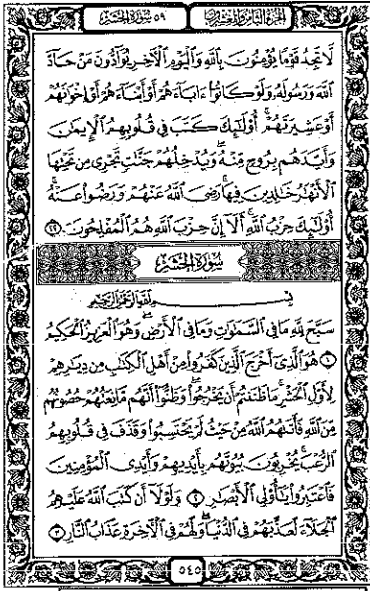 الجزء الثامن والعشرون
٥٩ سورة الحشر
لَّا تَجِدُ قَوْمًا يُؤْمِنُونَ بِٱللَّهِ وَٱلْيَوْمِ ٱلْآخِرِ يُوَآدُّونَ مَنْ حَآدَّ
ٱللَّهَ وَرَسُولَهُۥ وَلَوْ كَانُوٓا۟ ءَابَآءَهُمْ أَوْ أَبْنَآءَهُمْ أَوْ إِخْوَٰنَهُمْ
أَوْ عَشِيرَتَهُمْ ۚ أُو۟لَٰٓئِكَ كَتَبَ فِى قُلُوبِهِمُ ٱلْإِيمَٰنَ
وَأَيَّدَهُم بِرُوحٍ مِّنْهُ ۖ وَيُدْخِلُهُمْ جَنَّٰتٍ تَجْرِى مِن تَحْتِهَا
ٱلْأَنْهَٰرُ خَٰلِدِينَ فِيهَا ۚ رَضِىَ ٱللَّهُ عَنْهُمْ وَرَضُوا۟ عَنْهُ ۚ
أُو۟لَٰٓئِكَ حِزْبُ ٱللَّهِ ۚ أَلَآ إِنَّ حِزْبَ ٱللَّهِ هُمُ ٱلْمُفْلِحُونَ ٢٢
سورة الحشر
بِسْمِ ٱللَّهِ ٱلرَّحْمَٰنِ ٱلرَّحِيمِ
سَبَّحَ لِلَّهِ مَا فِى ٱلسَّمَٰوَٰتِ وَمَا فِى ٱلْأَرْضِ ۖ وَهُوَ ٱلْعَزِيزُ ٱلْحَكِيمُ
١ هُوَ ٱلَّذِىٓ أَخْرَجَ ٱلَّذِينَ كَفَرُوا۟ مِنْ أَهْلِ ٱلْكِتَٰبِ مِن دِيَٰرِهِمْ
لِأَوَّلِ ٱلْحَشْرِ ۚ مَا ظَنَنتُمْ أَن يَخْرُجُوا۟ ۖ وَظَنُّوٓا۟ أَنَّهُم مَّانِعَتُهُمْ حُصُونُهُم
مِّنَ ٱللَّهِ فَأَتَىٰهُمُ ٱللَّهُ مِنْ حَيْثُ لَمْ يَحْتَسِبُوا۟ ۖ وَقَذَفَ فِى قُلُوبِهِمُ
ٱلرُّعْبَ ۚ يُخْرِبُونَ بُيُوتَهُم بِأَيْدِيهِمْ وَأَيْدِى ٱلْمُؤْمِنِينَ
فَٱعْتَبِرُوا۟ يَٰٓأُو۟لِى ٱلْأَبْصَٰرِ ٢ وَلَوْلَآ أَن كَتَبَ ٱللَّهُ عَلَيْهِمُ
ٱلْجَلَآءَ لَعَذَّبَهُمْ فِى ٱلدُّنْيَا ۖ وَلَهُمْ فِى ٱلْآخِرَةِ عَذَابُ ٱلنَّارِ ٣
٥٤٥